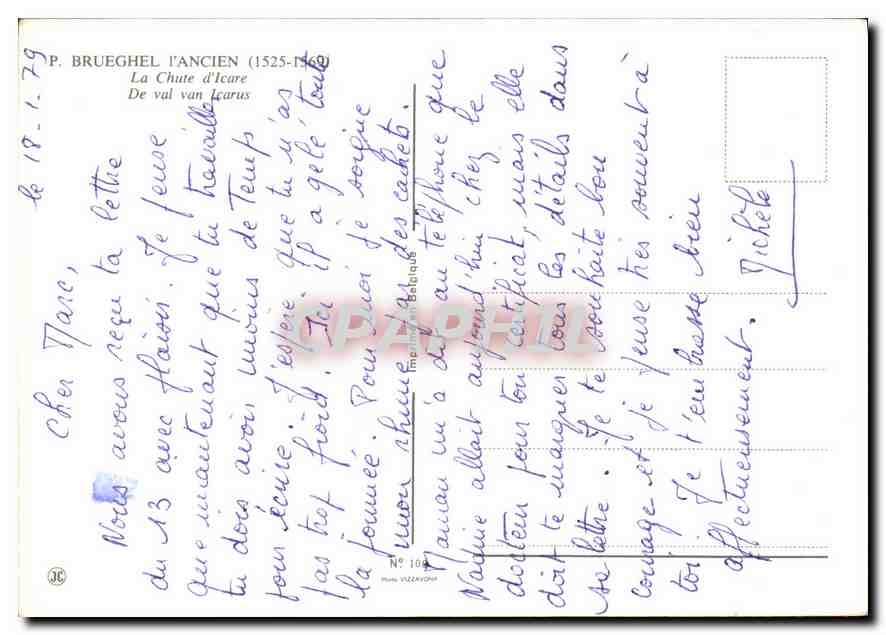 P. BRUEGHEL l'ANCIEN (1525-1569)
La Chute d'Icare
De val van Icarus
le 18-1-79
Cher Marc,
Nous avons reçu ta lettre
du 13 avec plaisir. Je pense
que maintenant que tu travailles
tu dois avoir moins de temps
pour écrire. J'espère que tu n'as
pas trop froid. Ici il a gelé toute
la journée. Pour moi je soigne
mon rhume par des cachets.
Maman m'a dit au téléphone que
allait aujourd'hui chez le
docteur pour ton certificat, mais elle
doit te marquer tous les détails dans
sa lettre. Je te souhaite bon
courage et je pense très souvent à
toi. Je t'embrasse bien
affectueusement.
Michèle
Imprimé en Belgique
CPAPHIL
JC
N° 108
Photo VIZZAVONA